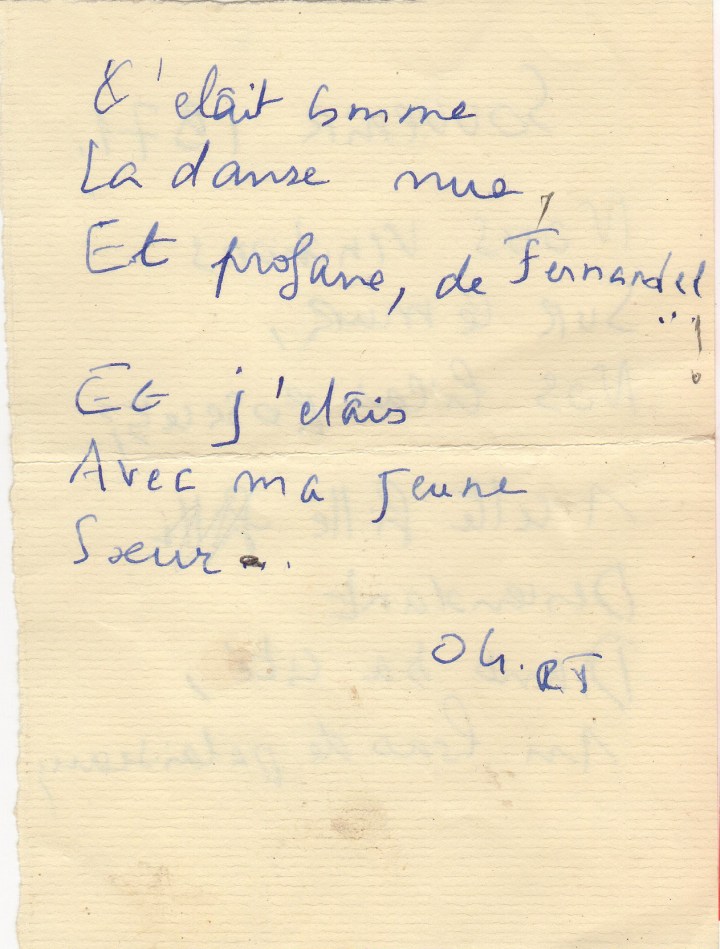 C'etâit comme
La danse nue,
Et profane, de Fernandel
..!
Et j'etâis
Avec ma jeune
Sœur...